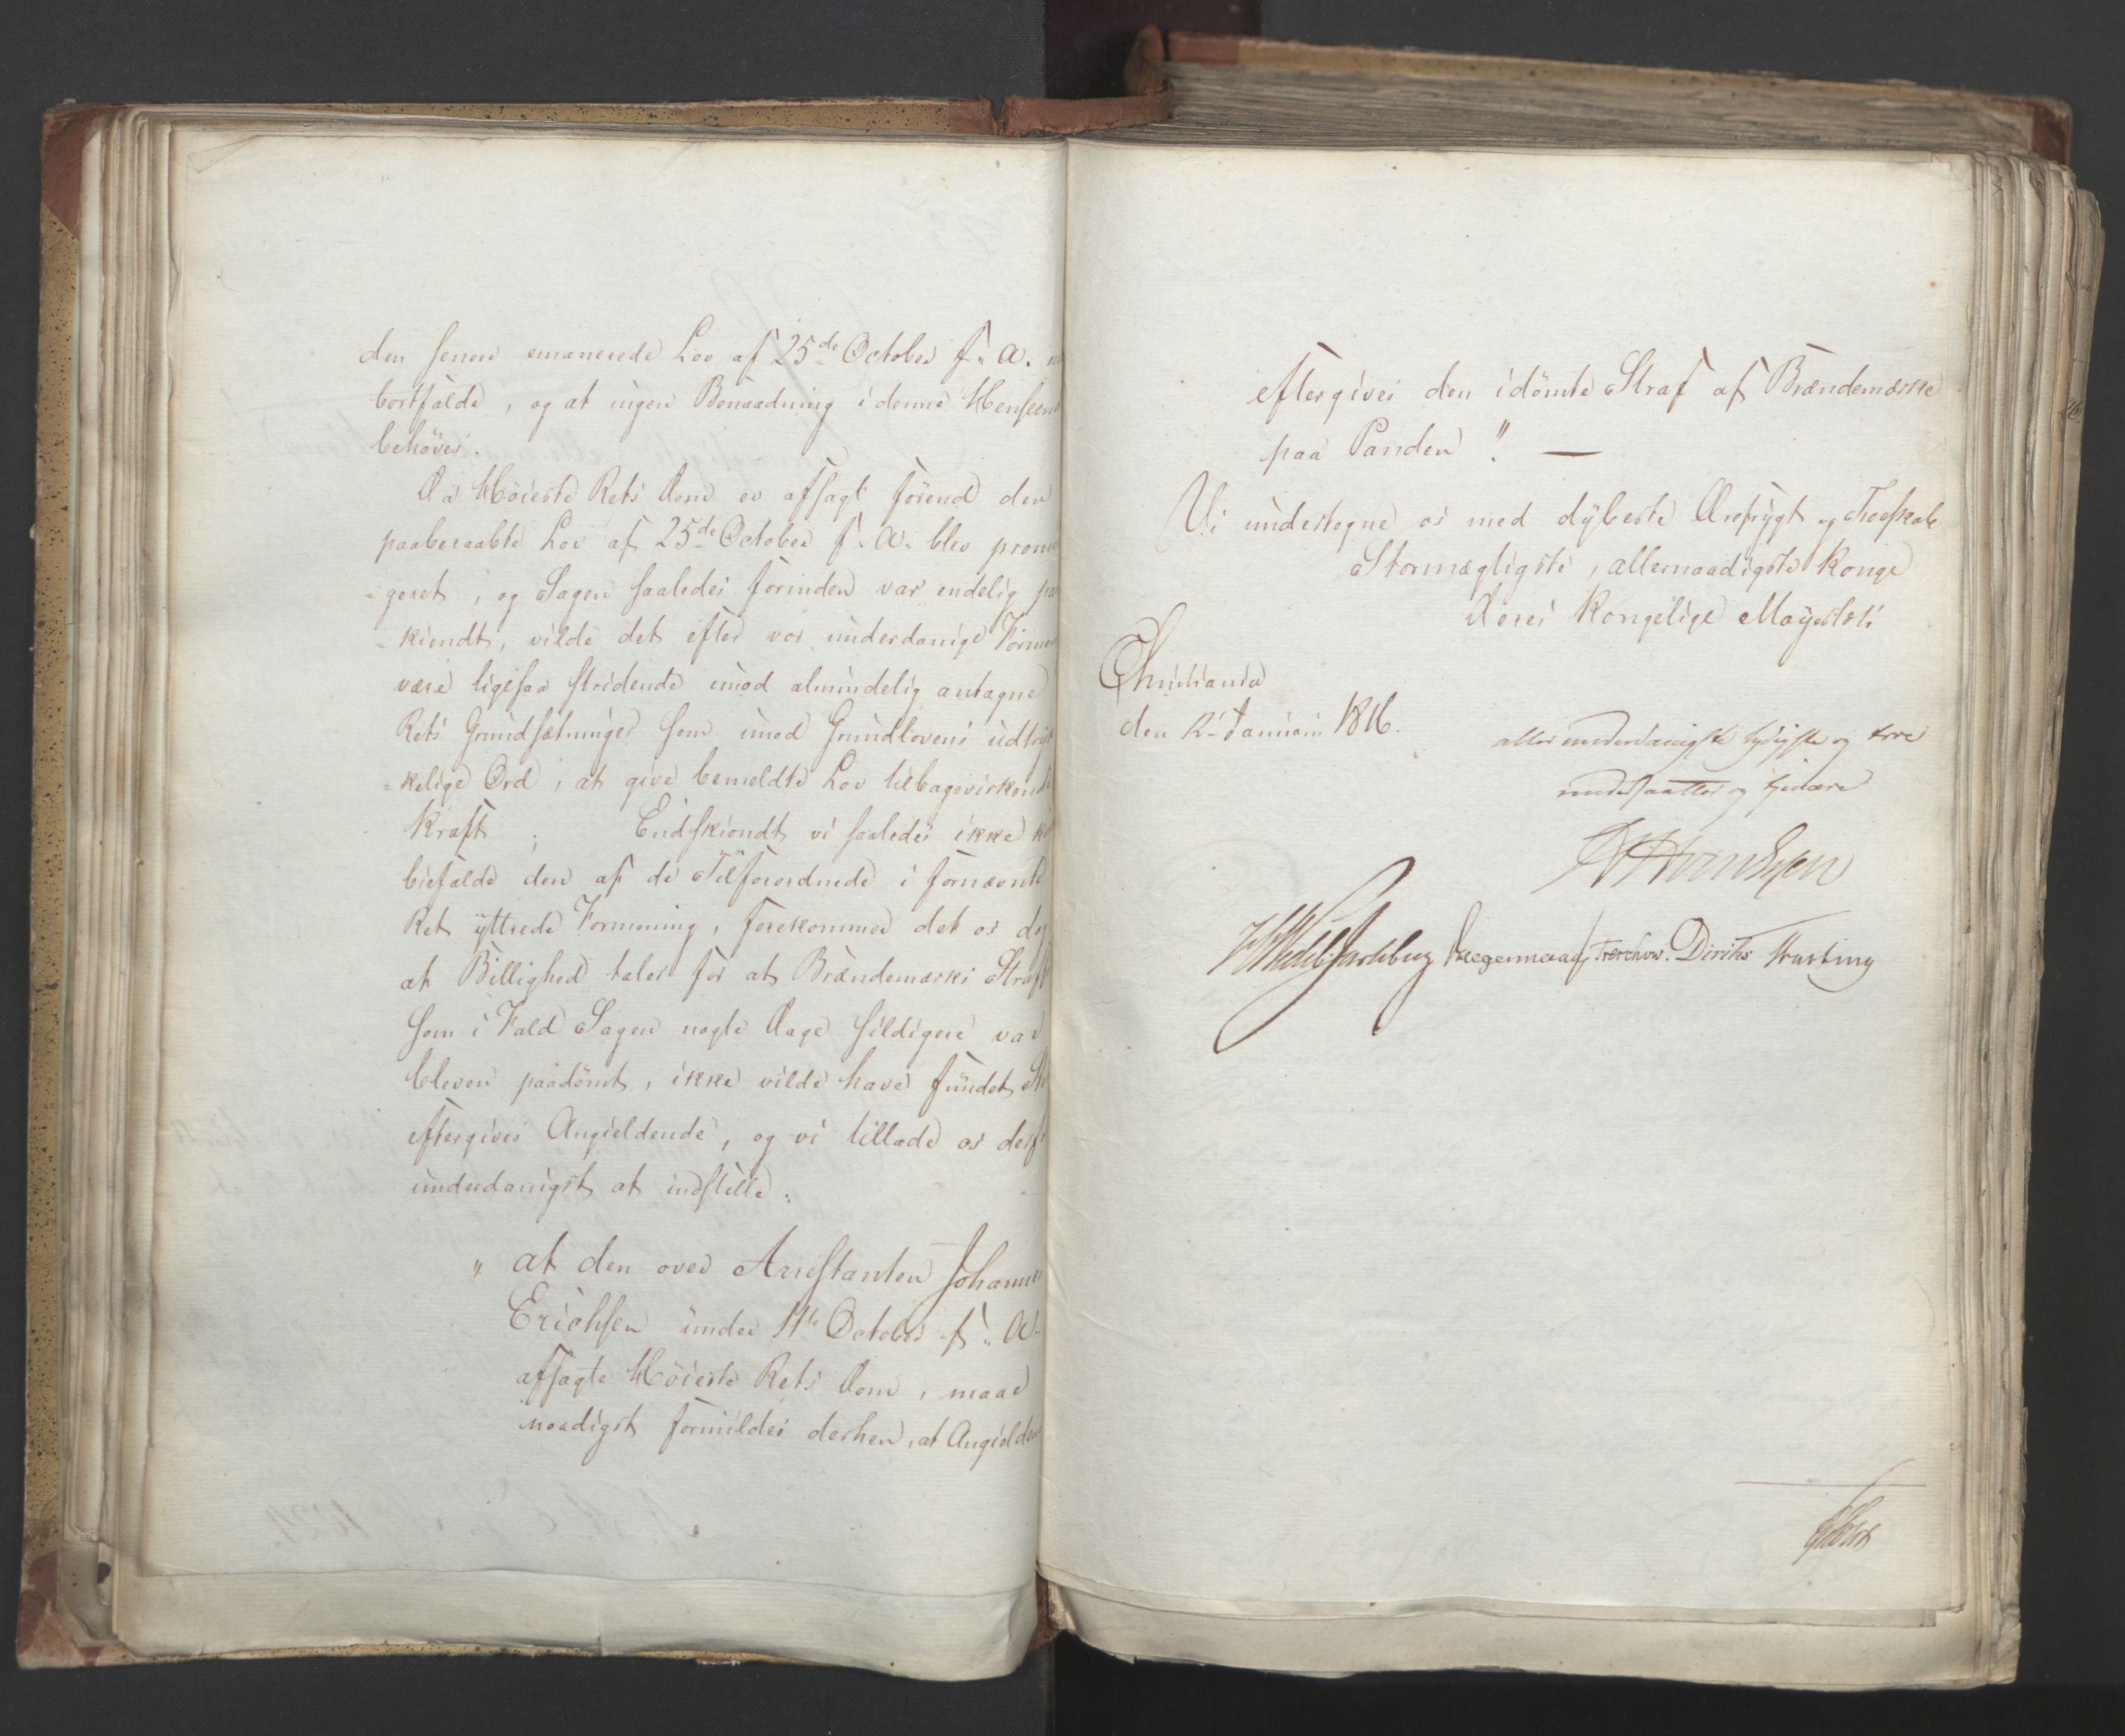 den senere emanerede Lov af 25de October f. A.
bortfalde, og at ingen Benaadning i denne Henseende
behöves.
Da Höieste Rets Dom er afsagt förend den
paaberaabte Lov af 25de October f. A. blev promul
=geret, og Sagen saaledes forinden var endelig paa
=kiendt, vilde det efter vor underdanige Formening
være ligesaa stridende imod almindelig antagne
Rets Grundsætninger som imod Grundlovens udtryk
=kelige Ord, at give bemeldte Lov tilbagevirkende
Kraft; Endskiöndt vi saaledes ikke
biefalde den af de Tilforordnede i fornævnte
Ret yttrede Formening, forekommer det os dog
at Billighed taler for at Brændemærks Straf
som i Fald Sagen nogle Dage sildigere var
bleven paadömt, ikke vilde have fundet
eftergives Angieldende, og vi tillade os derfor
underdanigst at indstille:
" at den over Arrestanten Johannes
Erichsen under 11te October f. A.
afsagte Höieste Rets Dom, maae
naadigst formildes derhen, at Angieldende
eftergives den idömte Straf af Brændemærke
paa Panden". —
Vi undertegne os med dybeste Ærefrygt og Troskab
Stormægtigste, allernaadigste Konge
Deres Kongelige Mayestets
Christiania
den 12 Januari 1816.
allerunderdanigste lydigste og troe
undersaatter og tjenere
Wedel Jarlsberg Krogh Treschow. Diriks Motzfeldt